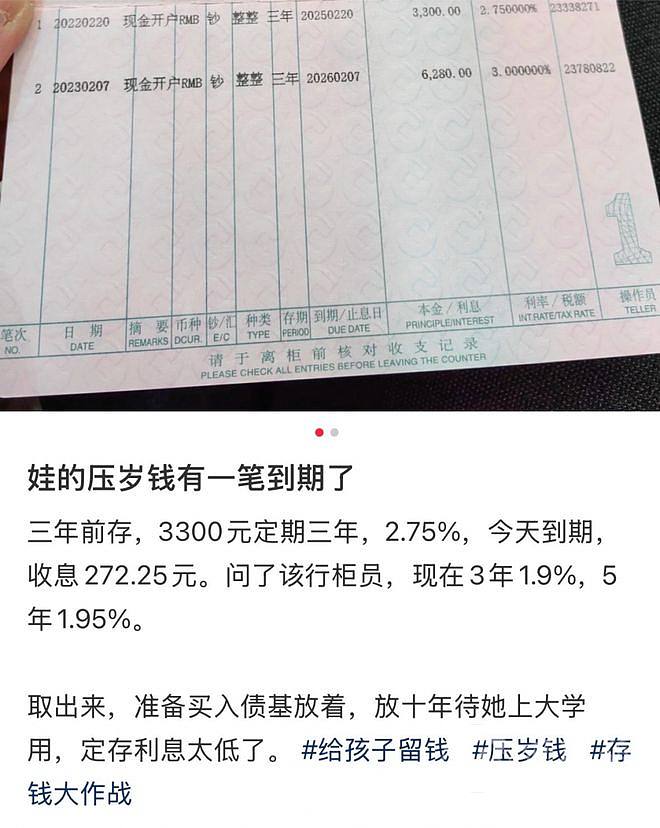 1 20220220 现金开户RMB 钞 整整 三年 20250220 3,300.00 2.750000% 23338271
2 20230207 现金开户RMB 钞 整整 三年 20260207 6,280.00 3.000000% 23780822
笔次 日 期 摘 要 币种 钞/汇 种类 存期 到期/止息日 本金/利息 利率/税额 操作员
NO. DATE REMARKS DCUR. E/C TYPE PERIOD DUE DATE PRINCIPLE/INTEREST INT.RATE/TAX RATE TELLER
请于离柜前核对收支记录
PLEASE CHECK ALL ENTRIES BEFORE LEAVING THE COUNTER
1
娃的压岁钱有一笔到期了
三年前存，3300元定期三年，2.75%，今天到期，
收息272.25元。问了该行柜员，现在3年1.9%，5
年1.95%。
取出来，准备买入债基放着，放十年待她上大学
用，定存利息太低了。 #给孩子留钱 #压岁钱 #存
钱大作战